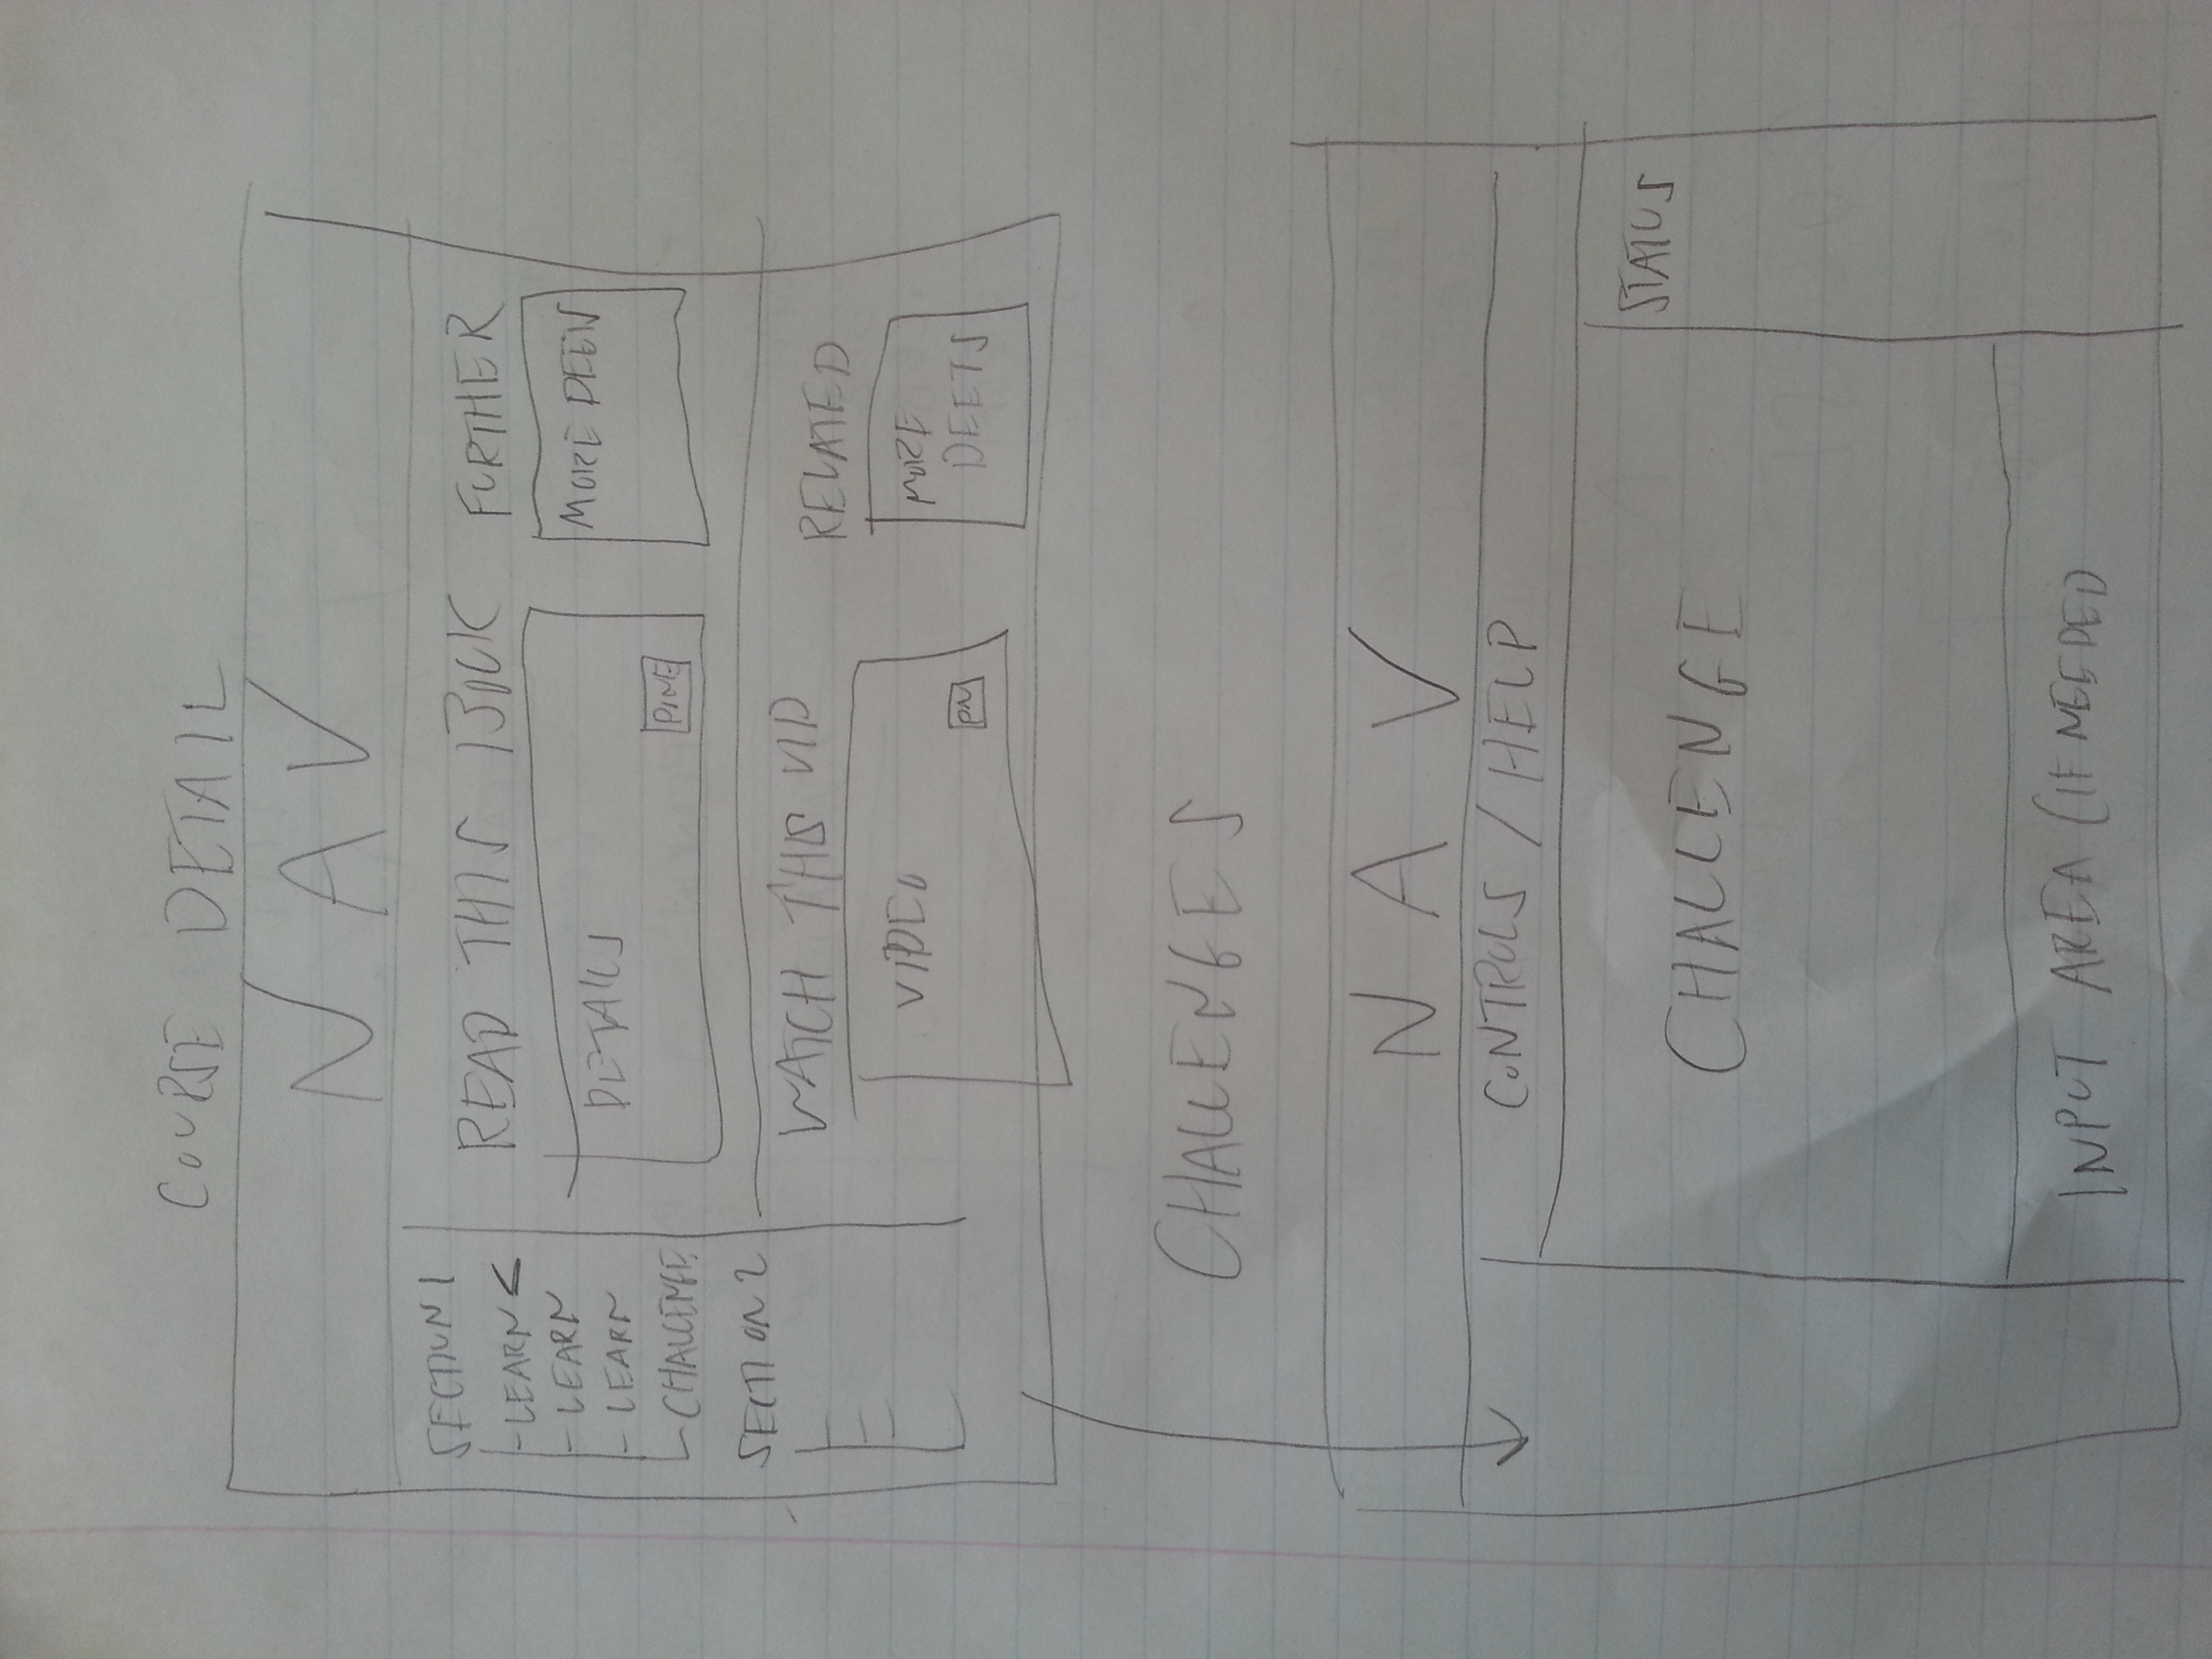 COURSE DETAIL
NAV
SECTION 1
- LEARN <
- LEARN
- LEARN
- CHALLENGE
SECTION 2
READ THIS BOOK
DETAILS
DONE
FURTHER
MORE DEETS
WATCH THIS VID
VIDEO
DN
RELATED
MORE
DEETS
CHALLENGES
NAV
CONTROLS / HELP
CHALLENGE
STATUS
INPUT AREA (IF NEEDED